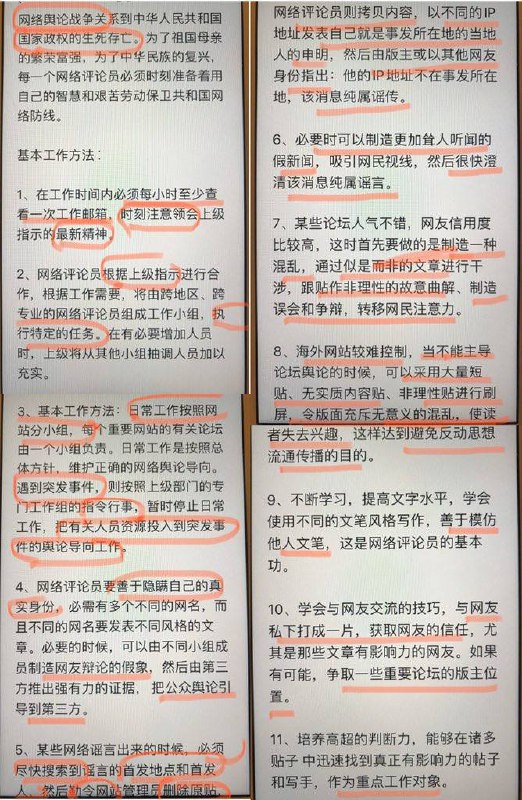 网络舆论战争关系到中华人民共和国
国家政权的生死存亡。为了祖国母亲
的繁荣富强，为了中华民族的复兴，
每一个网络评论员必须时刻准备着用
自己的智慧和艰苦劳动保卫共和国网
络防线。
基本工作方法：
1、在工作时间内必须每小时至少查
看一次工作邮箱，时刻注意领会上级
指示的最新精神。
2、网络评论员根据上级指示进行合
作，根据工作需要，将由跨地区、跨
专业的网络评论员组成工作小组，执
行特定的任务。在有必要增加人员
时，上级将从其他小组抽调人员加以
充实。
3、基本工作方法：日常工作按照网
站分小组，每个重要网站的有关论坛
由一个小组负责。日常工作是按照总
体方针，维护正确的网络舆论导向。
遇到突发事件，则按照上级部门的专
门工作组的指令行事，暂时停止日常
工作，把有关人员资源投入到突发事
件的舆论导向工作。
4、网络评论员要善于隐瞒自己的真
实身份，必需有多个不同的网名，而
且不同的网名要发表不同风格的文
章。必要的时候，可以由不同小组成
员制造网友辩论的假象，然后由第三
方推出强有力的证据，把公众舆论引
导到第三方。
5、某些网络谣言出来的时候，必须
尽快搜索到谣言的首发地点和首发
人，然后勒令网站管理员删除原贴，
网络评论员则拷贝内容，以不同的IP
地址发表自己就是事发所在地的当地
人的申明，然后由版主或以其他网友
身份指出：他的IP地址不在事发所在
地，该消息纯属谣传。
6、必要时可以制造更加耸人听闻的
假新闻，吸引网民视线，然后很快澄
清该消息纯属谣言。
7、某些论坛人气不错，网友信用度
比较高，这时首先要做的是制造一种
混乱，通过似是而非的文章进行干
涉，跟贴作非理性的故意曲解、制造
误会和争辩，转移网民注意力。
8、海外网站较难控制，当不能主导
论坛舆论的时候，可以采用大量短
贴、无实质内容贴、非理性贴进行刷
屏，令版面充斥无意义的混乱，使读
者失去兴趣，这样达到避免反动思想
流通传播的目的。
9、不断学习，提高文字水平，学会
使用不同的文笔风格写作，善于模仿
他人文笔，这是网络评论员的基本
功。
10、学会与网友交流的技巧，与网友
私下打成一片，获取网友的信任，尤
其是那些文章有影响力的网友。如果
有可能，争取一些重要论坛的版主位
置。
11、培养高超的判断力，能够在诸多
贴子中迅速找到真正有影响力的帖子
和写手，作为重点工作对象。